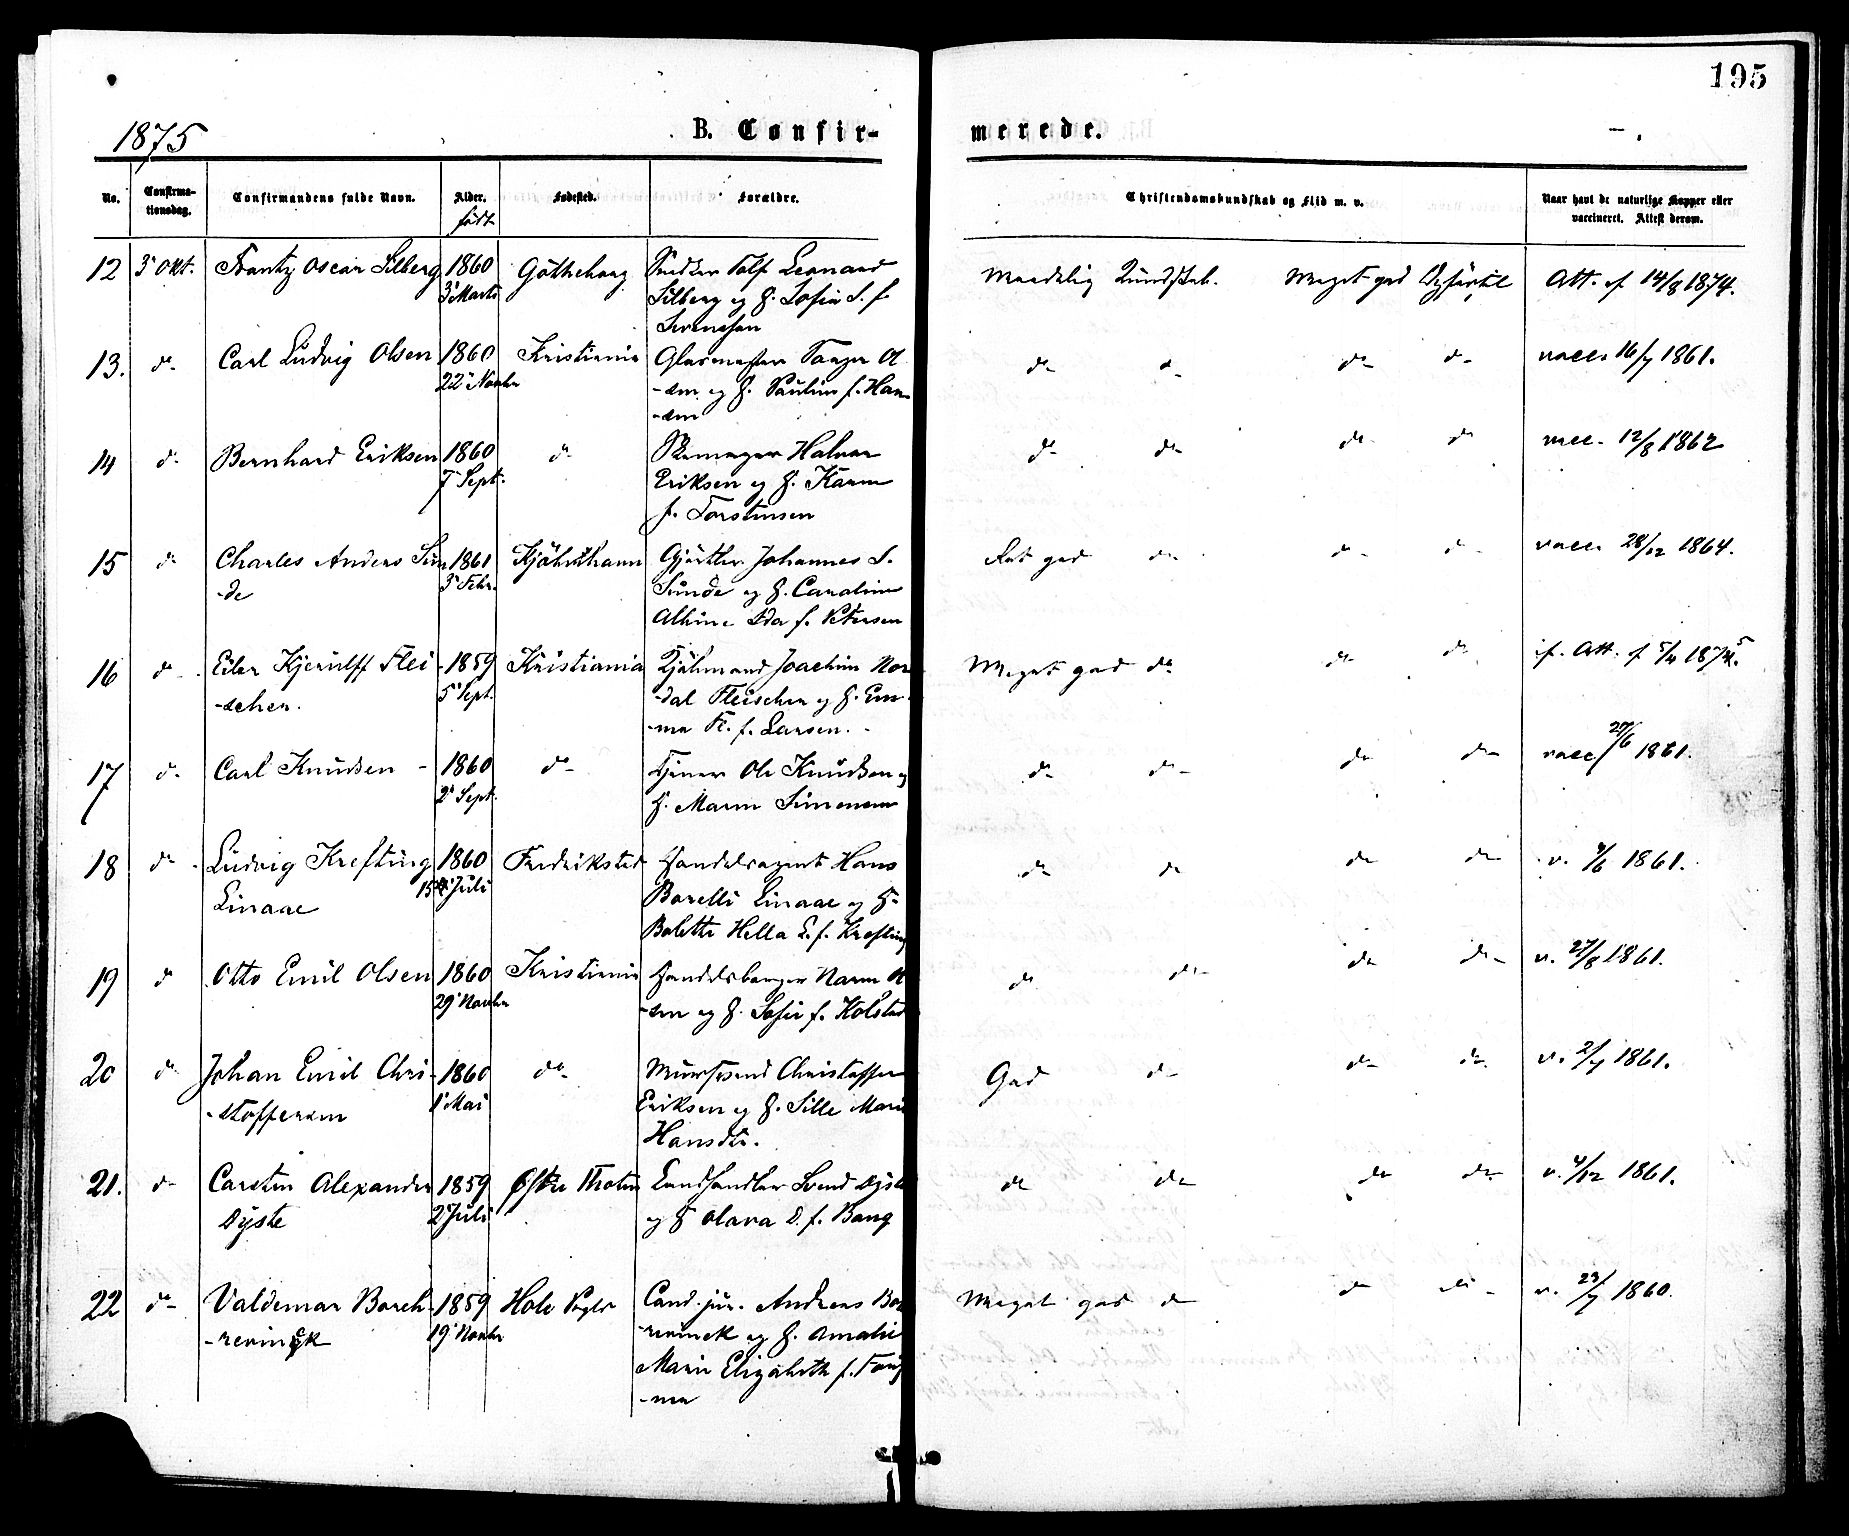 195
1875 B. Confir- merede.
No. Confirma-tionsdag. Confirmandens fulde Navn. Alder. født Fødested. Forældre. Christendomskundskab og Flid m. v. Naar havt de naturlige Kopper eller vaccineret. Attest derom.
12 3' Okt. Frantz Oscar Silberg 1860 Götheborg Leonard Maadelig Kundskab. Meget god Opførsel Att. af 14/8 1874.
3' Marts Silberg og H. Sofia S. f.
Svensson
13. do Carl Ludvig Olsen 1860 Kristiania Glasmester Ol do do do do vacc. 16/7 1861.
22' Novbr -sen og H. Pauline f. Han
-sen
14 do Bernhard Eriksen 1860 do Skomager Halvor do do do do vacc. 12/8 1862
7' Sept. Eriksen og H. Karen
f. Torstensen
15 do Charles Anders Sun 1861 Kjøbenhavn Gjørtler Johannes S. Ret god do do do vacc. 28/12 1864.
-de 3' Febr. Sunde og H. Caroline
Albine Ida f. Petersen
16 do Eiler Kjerulff Flei 1859 Kristiania Kjøbmand Joachim Nor Meget god do do do if. Att. f 5/4 1875.
-scher. 5' Sept. -dal Fleischer og H. Em
-ma Fl. f. Larsen.
17 do Carl Knudsen 1860 do Tjener Ole Knudsen og do do do do vacc 27/6 1861.
2' Sept. H. Maren Simensen
18 do Ludvig Krefting 1860 Fredriksted Handelsagent Hans do do do do v. 1861.
Linaae 15' Juli Borelli Linaae og H.
Bolette Hella L. f. Krefting
19 do Otto Emil Olsen 1860 Kristiania Handelsborger Ol do do do do v. 27/8 1861.
29' Novbr -sen og H. Sofie f. Kolstad
20 do Johan Emil Chri 1860 do Murersvend Christoffer God do do do v. 2/7 1861.
-stoffersen 1' Mai Eriksen og H. Sille Marie
Hansdtr.
21. do Carsten Alexander 1859 Østre Thoten Landhandler Svend Dyste do do do do v. 4/12 1861.
Dyste 2' Juli og H Olava D. f. Bang
22 do Valdemar Borch 1859 Hole Pgld Cand. jur. Andreas Bor Meget god do do do v. 23/7 1860.
-revinck 19' Novbr -revinck og H. Amalie
Marie Elizabeth f.
-ma